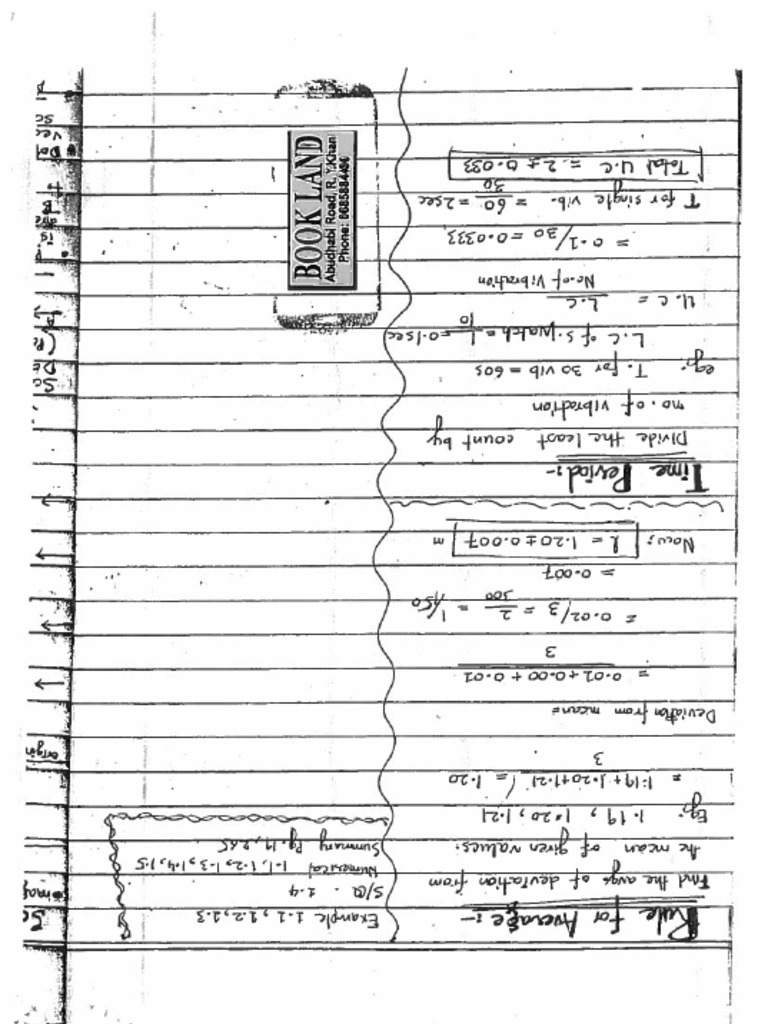 Rule for Average:-
Find the avg. of deviation from
the mean of given values.
Eg: 1.19, 1.20, 1.21
= 1.19+1.20+1.21 / 3 = 1.20
Deviation from mean=
= 0.01+0.00+0.01 / 3
= 0.02/3 = 2/300 = 1/150
= 0.007
Now; l = 1.20±0.007 m
Time Period:-
Divide the least count by
no. of vibration
eg:- T. for 30 vib = 60s
L.C of s.watch = 1/10 = 0.1sec
U.C = L.C / No. of Vibration
= 0.1/30 = 0.0333
T for single vib. = 60/30 = 2sec
Total U.C = 2 ± 0.033
Example 1.1, 1.2, 1.3
S/Q. 1.4
Numerical 1.1, 1.2, 1.3, 1.4, 1.5
Summary Pg. 19,
origin
BOOK LAND
Abudhabi Road, R.Y.Khan
Phone: 0685884400